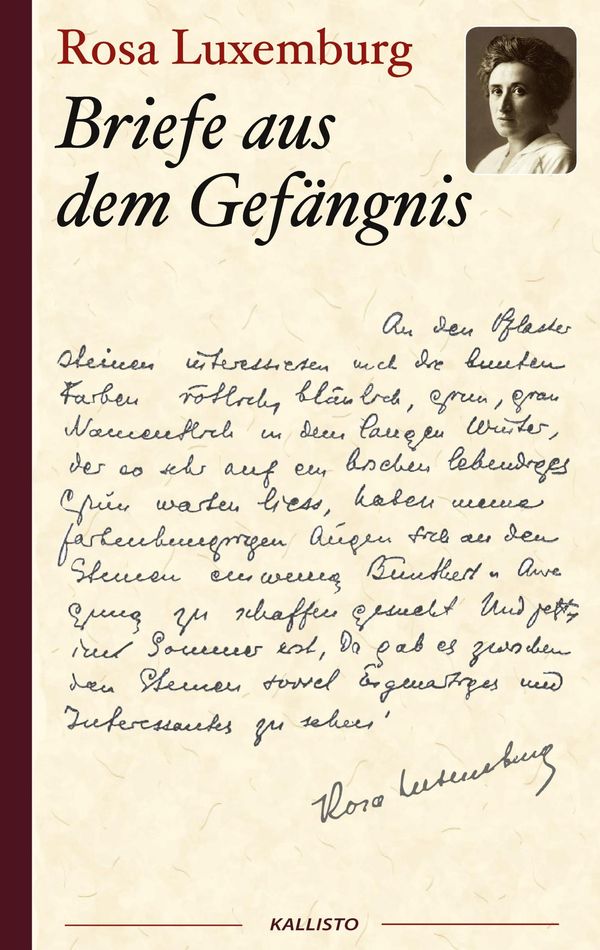 Rosa Luxemburg
Briefe aus
dem Gefängnis
An den Pflaster
steinen interessieren mich die bunten
Farben rötlich, bläulich, grün, grau
Namentlich in dem langen Winter,
der so sehr auf ein bischen lebendiges
Grün warten liess, haben meine
farbenhungrigen Augen sich an den
Steinen ein wenig Buntheit u Anre
gung zu schaffen gesucht Und jetzt,
im Sommer erst, Da gab es zwischen
den Steinen soviel Eigenartiges und
Interessantes zu sehen!
Rosa Luxemburg
KALLISTO